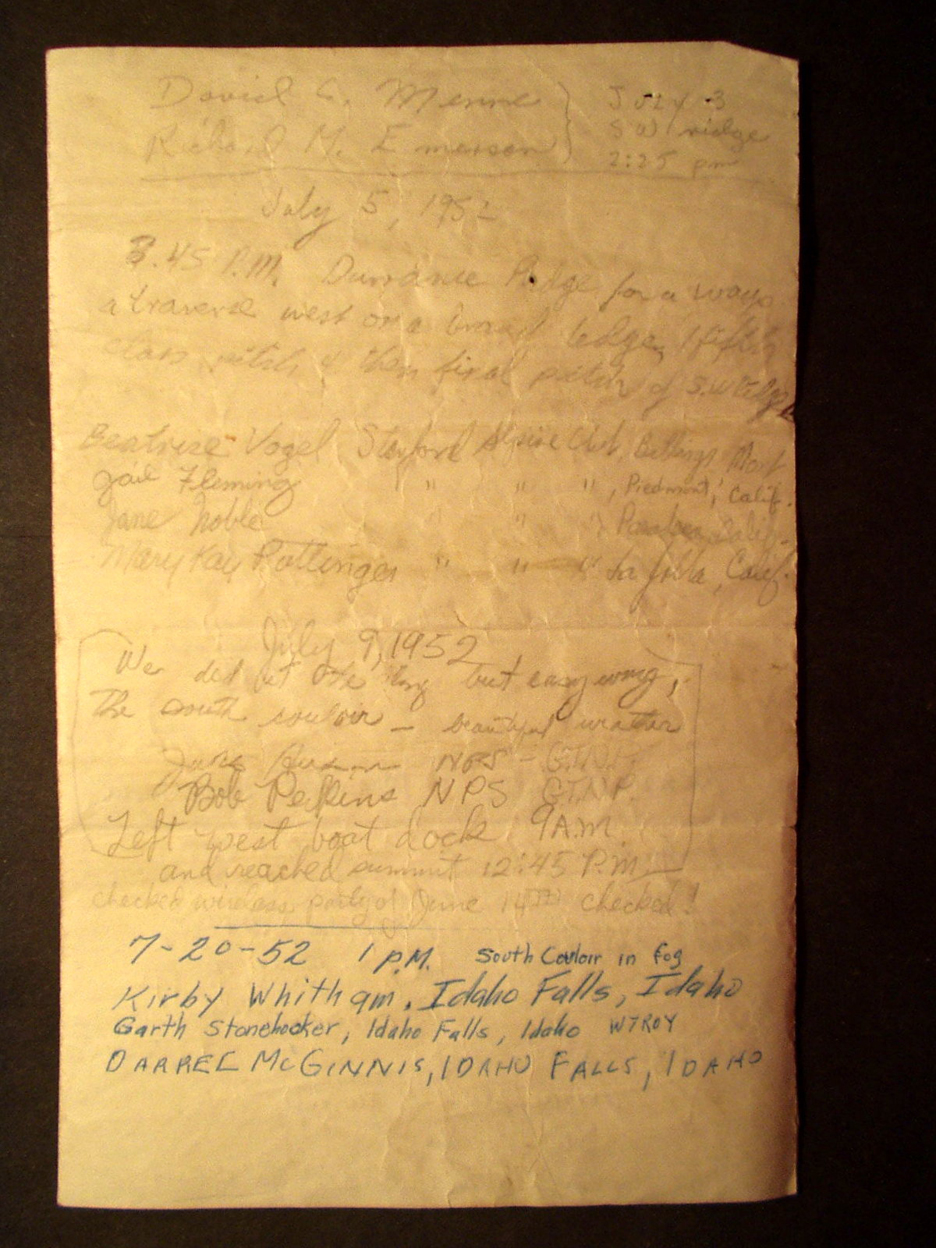 David G. Menne } July 3
Richard M. Emerson } SW ridge
2:25 pm
July 5, 1952
3.45 P.M. Durrance Ridge for a ways
a traverse west on a broad ledge, 1 fifth
class pitch & then final pitch of S.W ridge
Beatrice Vogel Stanford Alpine Club, Billings, Mont
Gail Fleming " " ", Piedmont, Calif.
Jane Noble " " " Calif.
Mary Kay Pottinger " " " La Jolla, Calif.
July 9, 1952
We did it the long but easy way,
the south couloir – beautiful weather
NPS – G.T.N.P.
Bob Perkins NPS G.T.N.P.
Left west boat dock 9 A.M.
and reached summit 12:45 P.M.
checked wireless party of June 14TH checked!
7-20-52 1 P.M. South Couloir in fog
Kirby Whitham. Idaho Falls, Idaho
Garth Stonehocker, Idaho Falls, Idaho W7ROY
DARREL McGINNIS, IDAHO FALLS, IDAHO